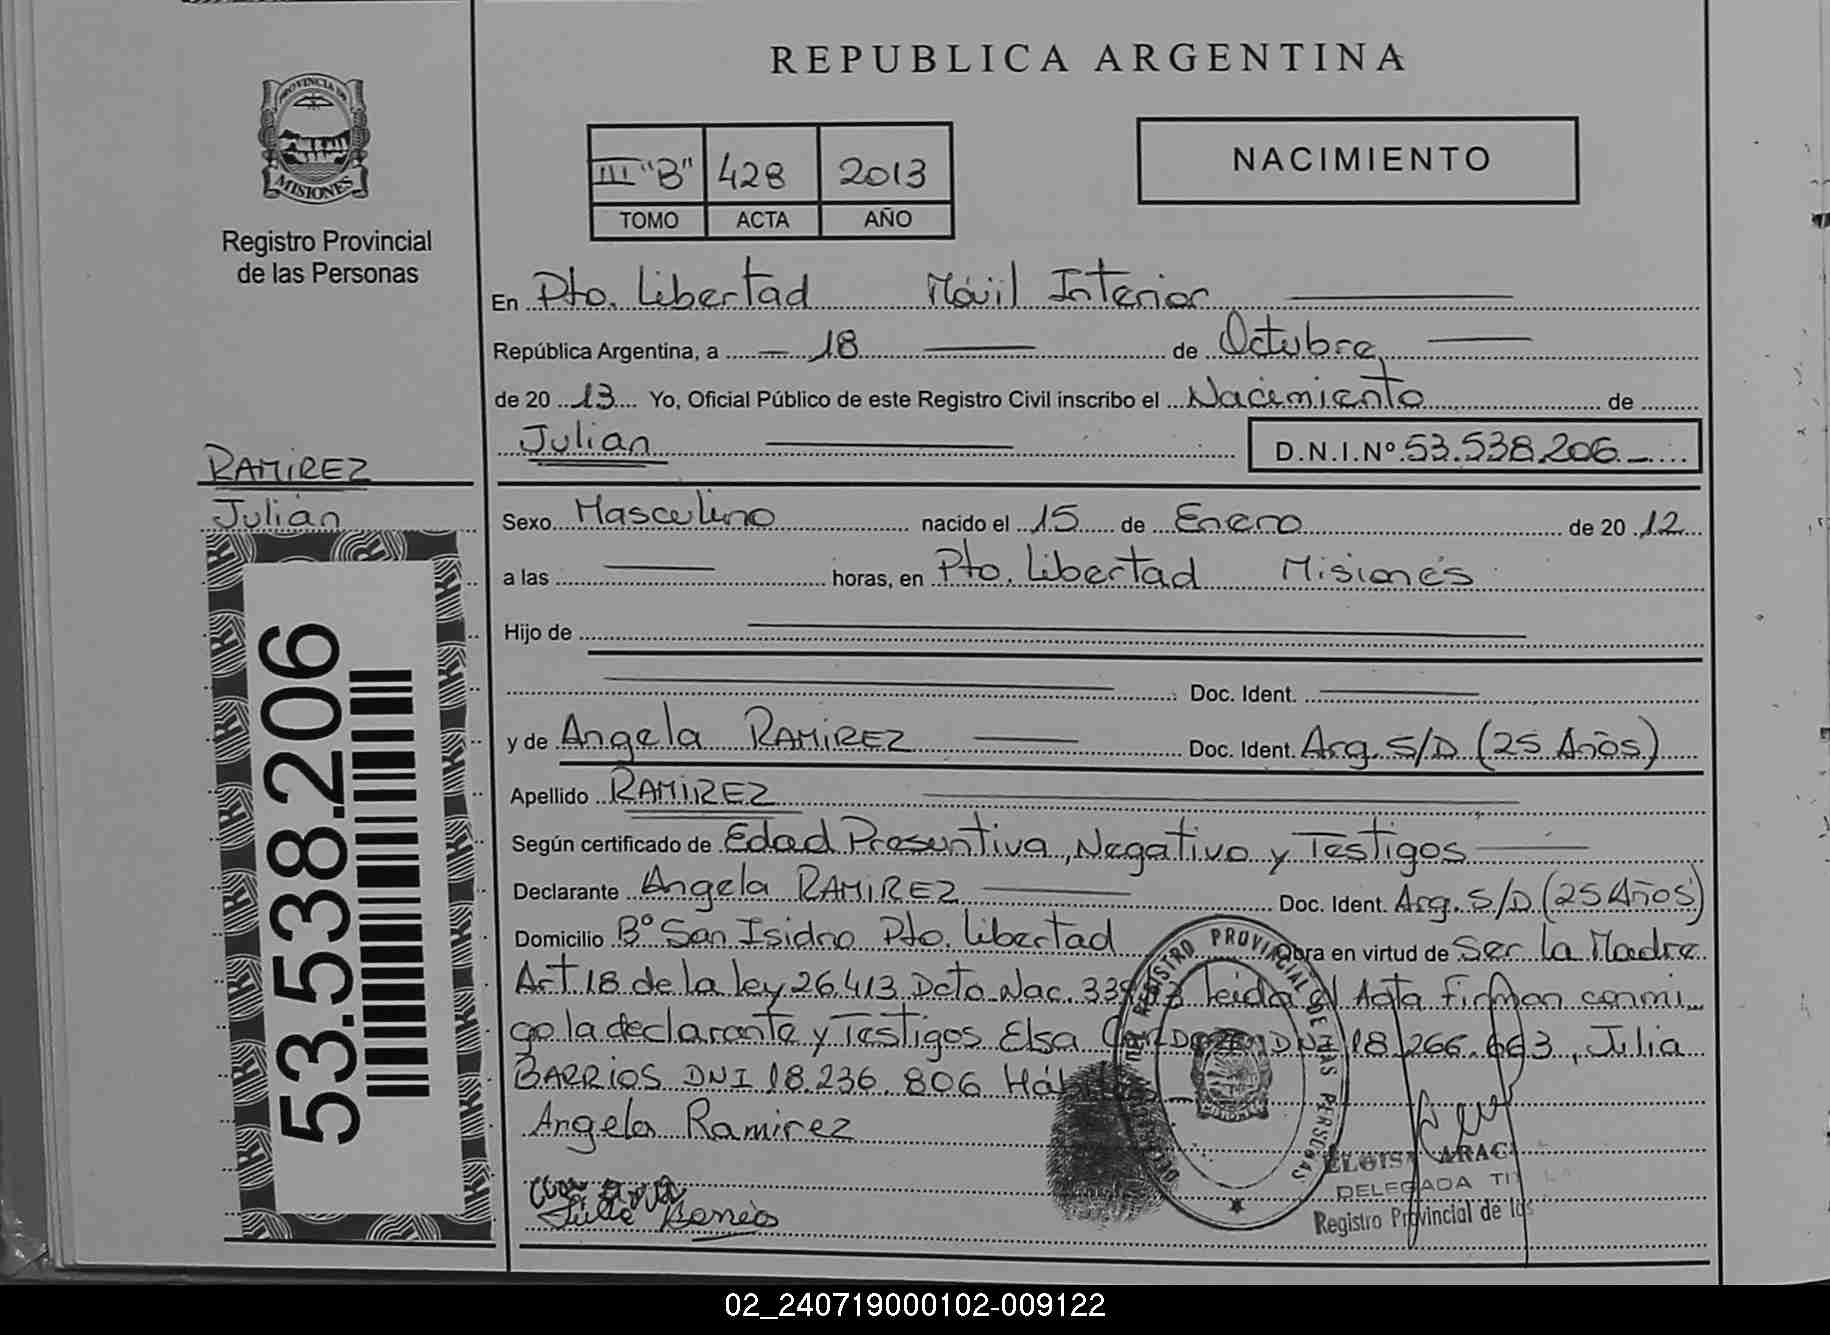 REPUBLICA ARGENTINA
PROVINCIA DE
MISIONES
Registro Provincial
de las Personas
III "B" 428 2013
TOMO ACTA AÑO
NACIMIENTO
En Pto. Libertad Móvil Interior
República Argentina, a 18 de Octubre
de 20 13 Yo, Oficial Público de este Registro Civil inscribo el Nacimiento de
Julian D.N.I.Nº 53.538.206
RAMIREZ
Julián
53.538.206
Sexo Masculino nacido el 15 de Enero de 20 12
a las horas, en Pto. Libertad Misiones
Hijo de
Doc. Ident.
y de Angela RAMIREZ Doc. Ident. Arg. S/D (25 Años)
Apellido RAMIREZ
Según certificado de Edad Presuntiva, Negativo y Testigos
Declarante Angela RAMIREZ Doc. Ident. Arg. S/D (25 Años)
Domicilio Bº San Isidro Pto. Libertad Obra en virtud de Ser la Madre
Art 18 de la ley 26.413 Dcto Nac. leida el Acta firman conmi
go la declarante y Testigos Elsa DNI 18.266.663, Julia
BARRIOS DNI 18.236.806
Angela Ramirez
REGISTRO PROVINCIAL DE LAS PERSONAS
MISIONES
DELEGADA
Registro Provincial de las
02_240719000102-009122